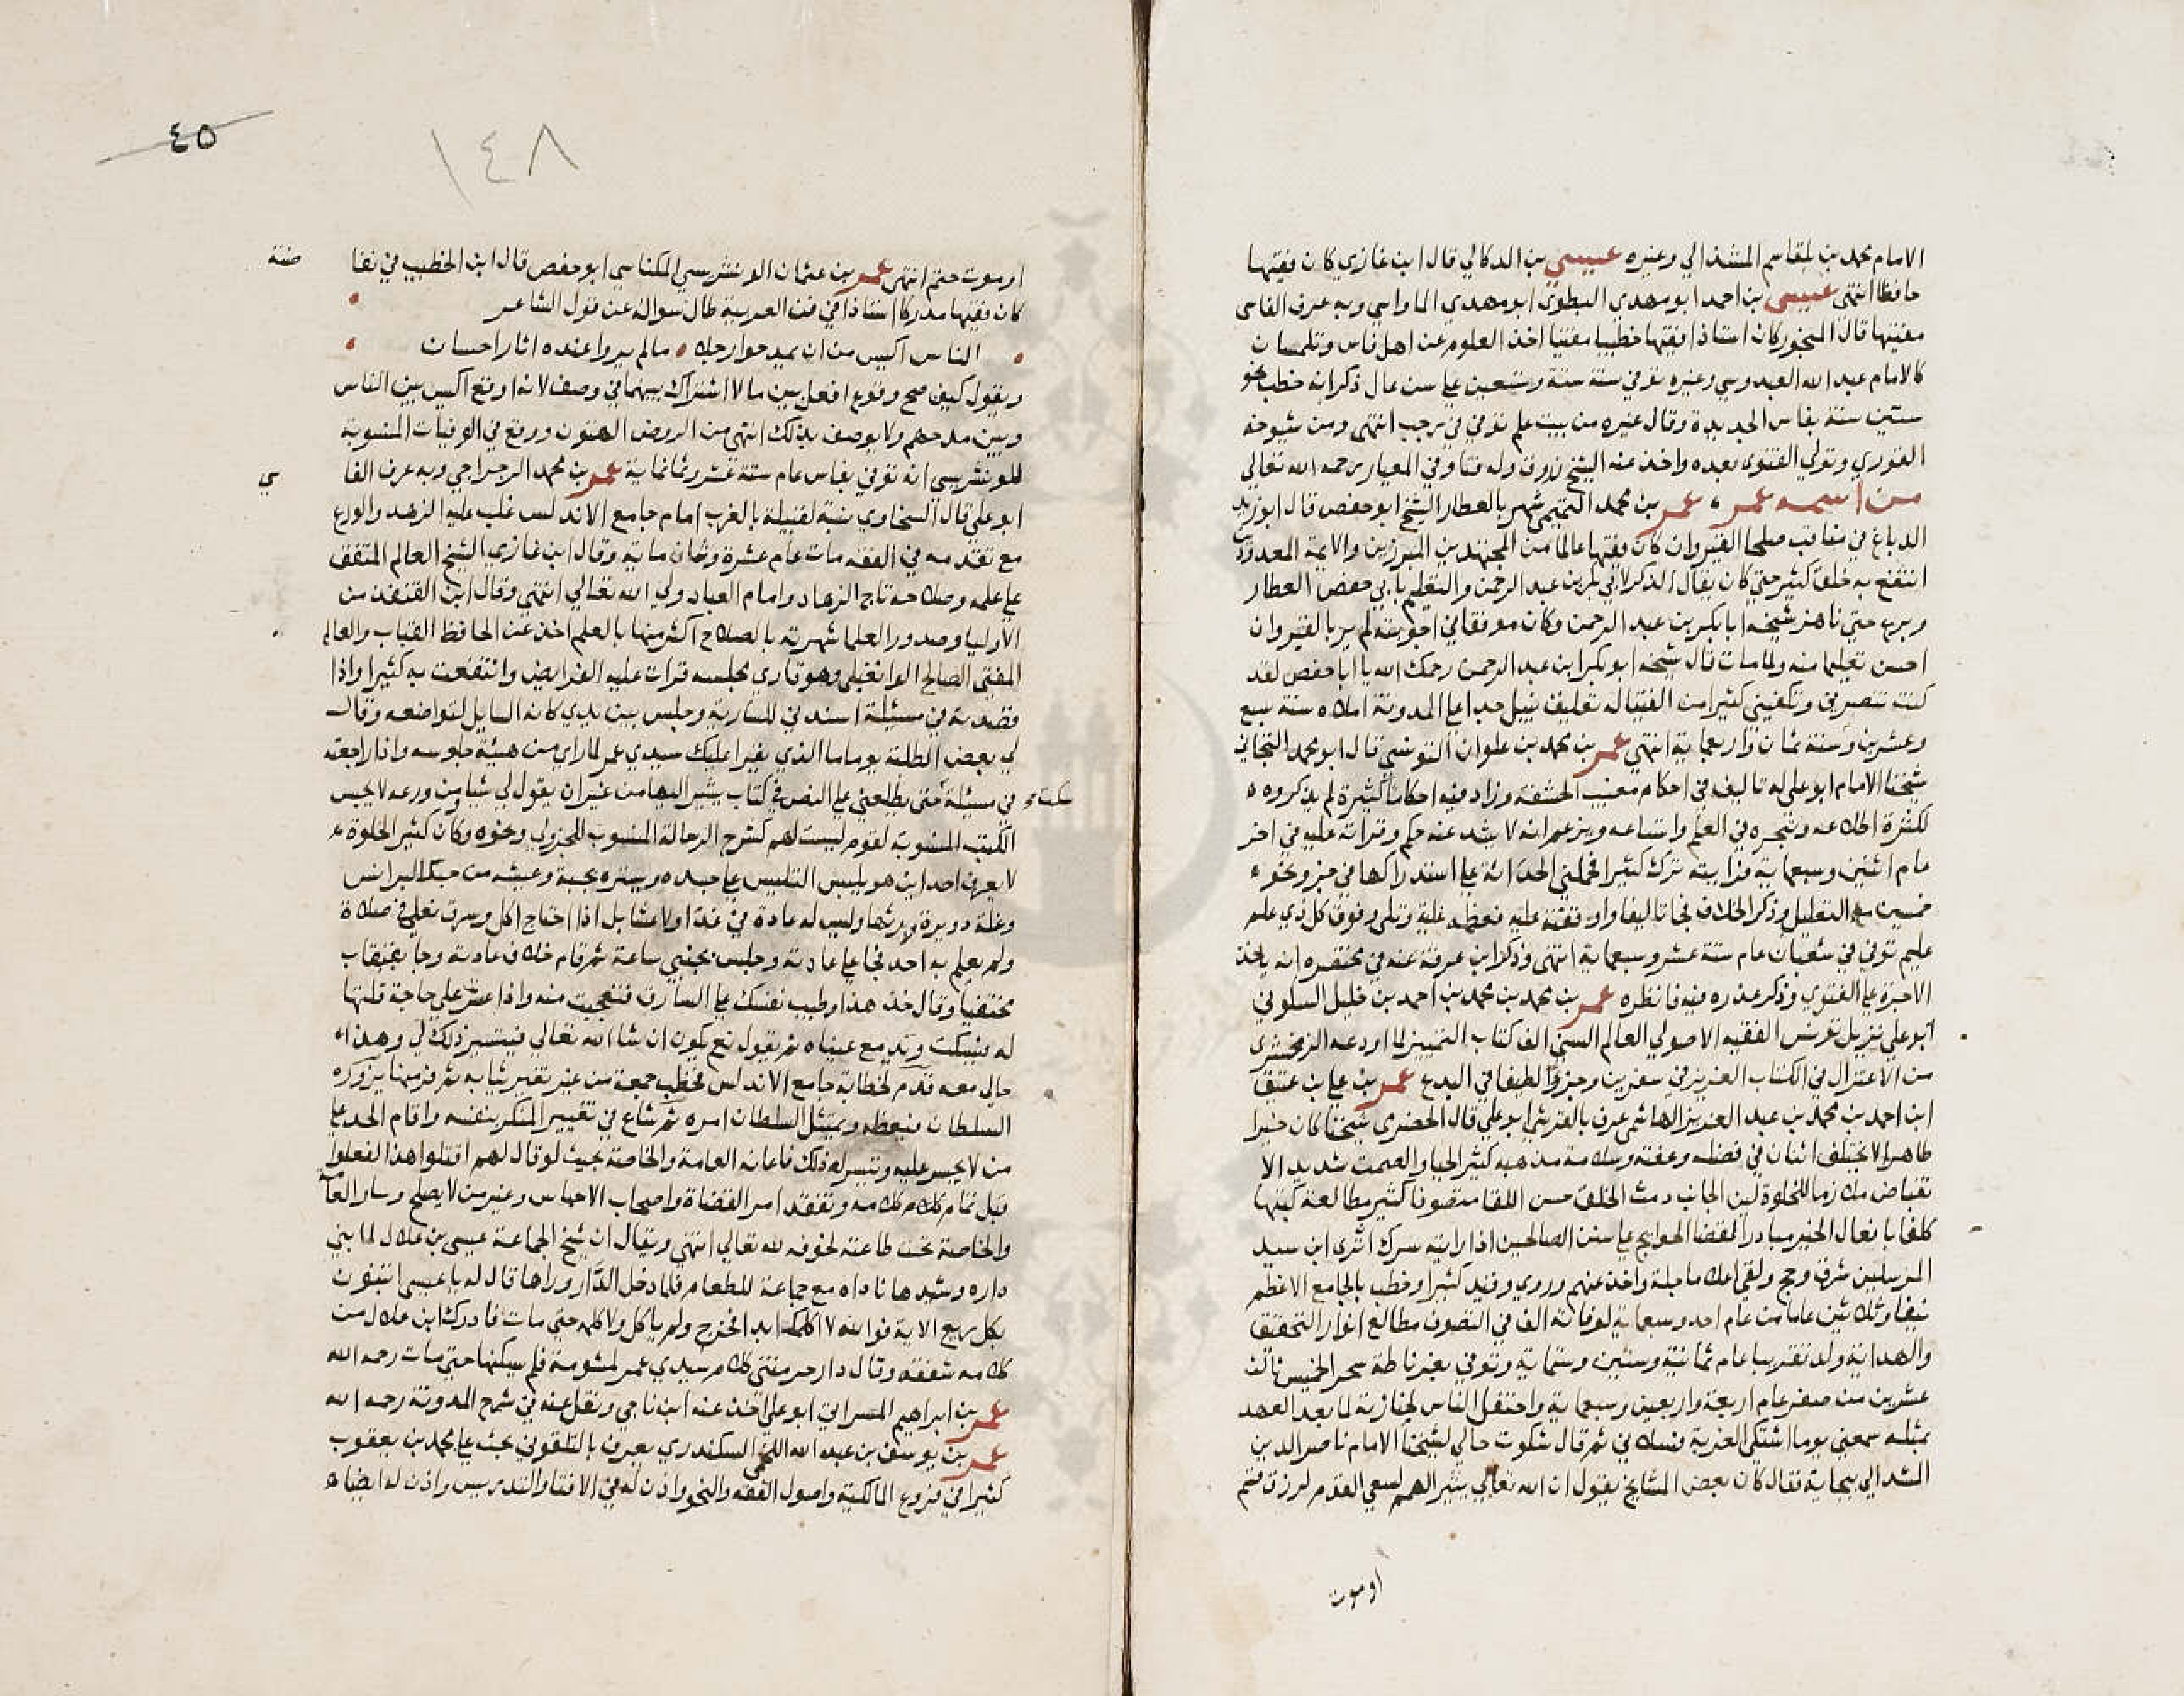 الامام محمد بن بلقاسم المشذالي وغيره عيسي بن الدكالي قال ابن غازي كان فقيها
حافظا انتهى عيسى بن احمد ابو مهدي البطوى ابو مهدي الماواسي وبه عرف الفاسي
مفتيها قال المنجور كان استاذا فقيها خطيبا مفتيا اخذ العلوم عن اهل فاس وتلمسان
كالامام عبد الله العبدوسي وغيره توفي سنة ستة وتسعين علي سن عال ذكر انه خطب نحو
ستين سنة بفاس الجديدة وقال غيره من بيت علم توفي في رجب انتهى ومن شيوخه
القوري وتولي الفتوى بعده واخذ عنه الشيخ زروق وله فتاوي في المعيار رحمه الله تعالي
من اسمه عمر عمر بن محمد التميمي شهر بالعطار الشيخ ابو حفص قال ابو زيد
الدباغ في مناقب صلحا القيروان كان فقيها عالما من المجتهدين المبرزين والايمة المعدودين
انتفع به خلق كثير حتي كان يقال الذكر لابي بكر بن عبد الرحمن والتعليم بابي حفص العطار
وبرع حتي ناهز شيخه ابا بكر بن عبد الرحمن وكان موفقا في اجوبته لم ير بالقيروان
احسن تعليما منه ولما مات قال شيخه ابو بكر ابن عبد الرحمن رحمك الله يا ابا حفص لقد
كنت تنصرني وتكفيني كثيرا من الفتيا له تعليق نبيل جدا علي المدونة املاه سنة سبع
وعشرين وسنة ثمان واربعماية انتهي عمر بن محمد بن علوان التونسي قال ابو محمد التجاني
شيخنا الامام ابو علي له تاليف في احكام مغيب الحشفة وزاد فيه احكاما كثيرة لم يذكروه
لكثرة اطلاعه وتبحره في العلم واتساعه ويزعم انه لا يشذ عنه حكم وقراته عليه في اخر
عام اثنين وسبعماية فرايته ترك كثيرا فحملني الحداثة علي استدراكها في جزو نحو
خمسين مع التعليل وذكر الخلاف فجا تاليفا واوقفته عليه فعظمه غلية وتلي وفوق كل ذي علم
عليم توفي في شعبان عام ستة عشر وسبعماية انتهى وذكر ابن عرفة عنه في مختصره انه ياخذ
الاجرة علي الفتوي وذكر عذره فيه فانظره عمر بن محمد بن محمد بن احمد بن خليل السلوني
ابو علي نزيل تونس الفقيه الاصولي العالم السني الف كتاب التمييز لما اودعه الزمخشرى
من الاعتزال في الكتاب العزيز في سفرين وجزوا لطيفا في البدع عمر بن علي بن عتيق
ابن احمد بن محمد بن عبد العزيز الهاشمي عرف بالقرشي ابو علي قال الحضرى شيخنا كان خيرا
طاهرا لا يختلف اثنان في فضله وعفته وسلامة مذهبه كثير الحيا والصمت شديد الا
نقباض ملازما للخلوة لين الجانب دمث الخلق حسن اللقا متصونا كثير مطالعة كتبها
كلفا بافعال الخير مبادرا لقضا الحوايج علي سنن الصالحين اذا رايته سرك اثرى ابن سيد
المرسلين شرق وحج ولقي اعلاما جلة واخذ عنهم وروي وقيد كثيرا وخطب بالجامع الاعظم
نيفا وثلاثين عاما من عام احد وسبعماية لوفاته الف في التصوف مطالع انوار التحقيق
والهداية ولد تقريبا عام ثمانية وستين وستماية وتوفي بغرناطة سحر الخميس ثالث
عشرين من صفر عام اربعة واربعين وسبعماية واحتفل الناس لجنازته لما بعد العهد
بمثله سمعني يوما اشتكي الغربة فسلاني ثم قال شكوت حالي لشيخنا الامام ناصر الدين
المشدالي ببجاية فقال كان بعض المشايخ يقول ان الله تعالي يثير الهمم لسعي القدم لرزق قسم
او موت
٤٥
١٤٨
او موت حتم انتهى عمر بن عثمان الونشريسي المكناسي ابو حفص قال ابن الخطيب في نفا
ضته
كان فقيها مدركا استاذا في فن العربية طال سواله عن قول الشاعر
الناس اكيس من ان يمدحوا رجلا مالم يروا عنده اثار احسان
ويقول كيف صح وقوع افعل بين ما لا اشتراك بينهما في وصف لانه اوقع اكيس بين الناس
وبين مدحهم ولا يوصف بذلك انتهى من الروض الهتون ووقع في الوفيات المنسوبة
للونشريسي انه توفي بفاس عام ستة عشر وثمانماية عمر بن محمد الرجراجي وبه عرف الفا
سي
ابو علي قال السخاوي نسبة لقبيلة بالغرب امام جامع الاندلس غلب عليه الزهد والورع
مع تقدمه في الفقه مات عام عشرة وثمان ماية وقال ابن غازي الشيخ العالم المتفق
علي علمه وصلاحه تاج الزهاد وامام العباد ولي الله تعالي انتهي وقال ابن القنفذ من
الاوليا وصدور العلما شهرته بالصلاح اكثر منها بالعلم اخذ عن الحافظ القباب والعالم
المفتي الصالح الوانغيلي وهو قاري مجلسه قرات عليه الفرايض وانتفعت به كثيرا واذا
قصدته في مسيلة اسندني للسارية وجلس بين يدي كانه السايل لتواضعه وقال
لي بعض الطلبة يوما ما الذي يقرا عليك سيدي عمر لما راي من هيئة جلوسه واذا راجعته
في مسيلة سكت حتى يطلعني علي النص في كتاب يشير اليها من غير ان يقول لي شيا ومن ورعه لا يحبس
الكتب المنسوبة لقوم ليست لهم كشرح الرسالة المنسوب للجزولي ونحوه وكان كثير الخلوة
لا يعرف احد اين هو يلبس التليس علي جسده ويستره بجبة وعيشه من حبك البرانس
وغلة دويرة ورثها وليس له عادة في غدا ولا عشا بل اذا احتاج اكل وسرت نعلي في صلاة
ولم يعلم به احد فجا علي عادته وجلس بجنبي ساعة ثم قام خلاف عادته وجا بقبقاب
مختفيا وقال خذ هذا وطيب نفسك علي السارق فتعجبت منه واذا عسر علي حاجة قلتها
له فيبكت وتدمع عيناه ثم يقول نعم يكون ان شا الله تعالي فيتيسر ذلك لي وهذا
حالي معه قدم لخطابة جامع الاندلس فخطب جمعة من غير تغيير ثيابه ثم فر منها يزوره
السلطان فيعظه ويمتثل السلطان امره ثم شاع في تغيير المنكر بنفسه واقام الحد علي
من لا يجسر عليه وتيسر له ذلك فاعانه العامة والخاصة بحيث لو قال لهم اقتلوا هذا لفعلوا
قبل تمام كلامه وتفقد امر القضاة واصحاب الاحباس وغير من لا يصلح وسار العامة
والخاصة تحت طاعته لخوفه لله تعالي انتهي ويقال ان شيخ الجماعة عيسى بن علال لما بني
داره وشيدها ناداه مع جماعة للطعام فلما دخل الدار وراها قال له يا عيسى اتبنون
بكل ريع الاية فوالله لا اكلمك ابدا فخرج ولم ياكل ولا كلمه حتي مات فادرك ابن علال من
كلامه شفقه وقال دار حرمتني كلام سيدي عمر لمشومة فلم يسكنها حتي مات رحمه الله
عمر بن ابراهيم المسراتي ابو علي اخذ عنه ابن ناجي ونقل عنه في شرح المدونة رحمه الله
عمر بن يوسف بن عبد الله اللخمي السكندري يعرف بالتلقوني بحث علي محمد بن يعقوب
كثيرا في فروع المالكية واصول الفقه والنحو واذن له في الافتا والتدريس واذن له ايضا